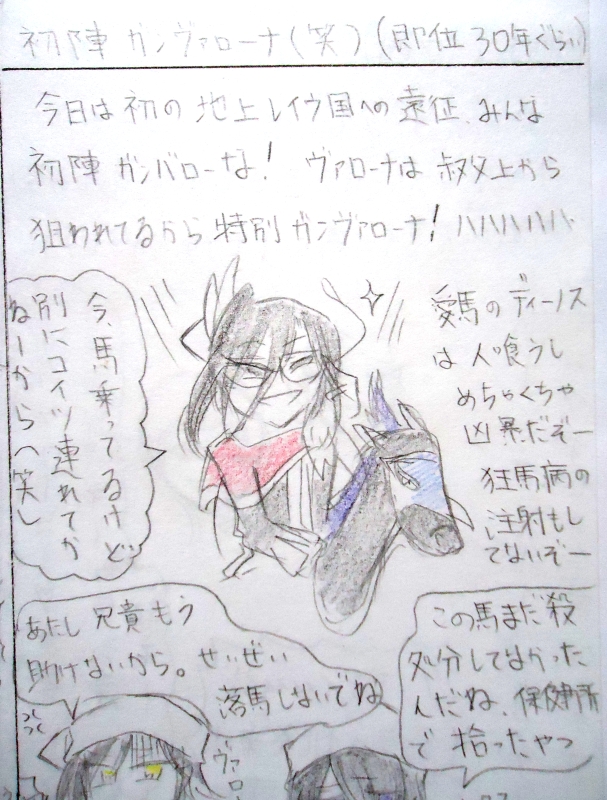 初陣 ガンヴァローナ(笑) (即位30年ぐらい)
今日は初の地上レイウ国への遠征、みんな
初陣ガンバローな! ヴァローナは叔父上から
狙われてるから特別ガンヴァローナ! ハハハハハハ
愛馬のディーノス
は人喰うし
めちゃくちゃ
凶暴だぞー
狂馬病の
注射もし
てないぞー
今、馬乗ってるけど
別にコイツ連れてか
ねーから(笑)
あたし兄貴もう
助けないから。せいぜい
落馬しないでね
この馬まだ殺
処分してなかった
んだね、保健所
で拾ったやつ
ヴァロー